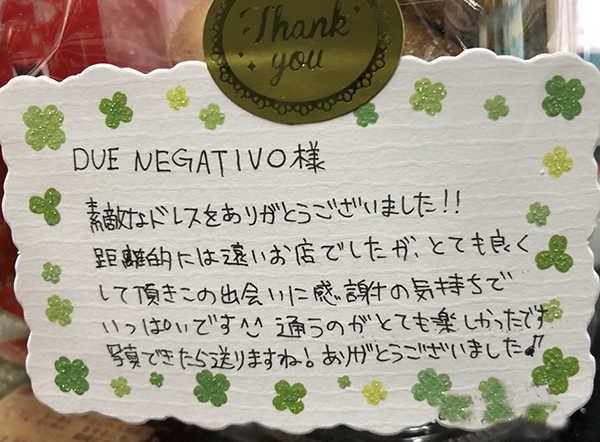 Thank
you
DUE NEGATIVO様
素敵なドレスをありがとうございました!!
距離的には遠いお店でしたが、とても良く
して頂きこの出会いに感謝の気持ちで
いっぱいです^^ 通うのがとても楽しかったです
写真できたら送りますね!ありがとうございました♪